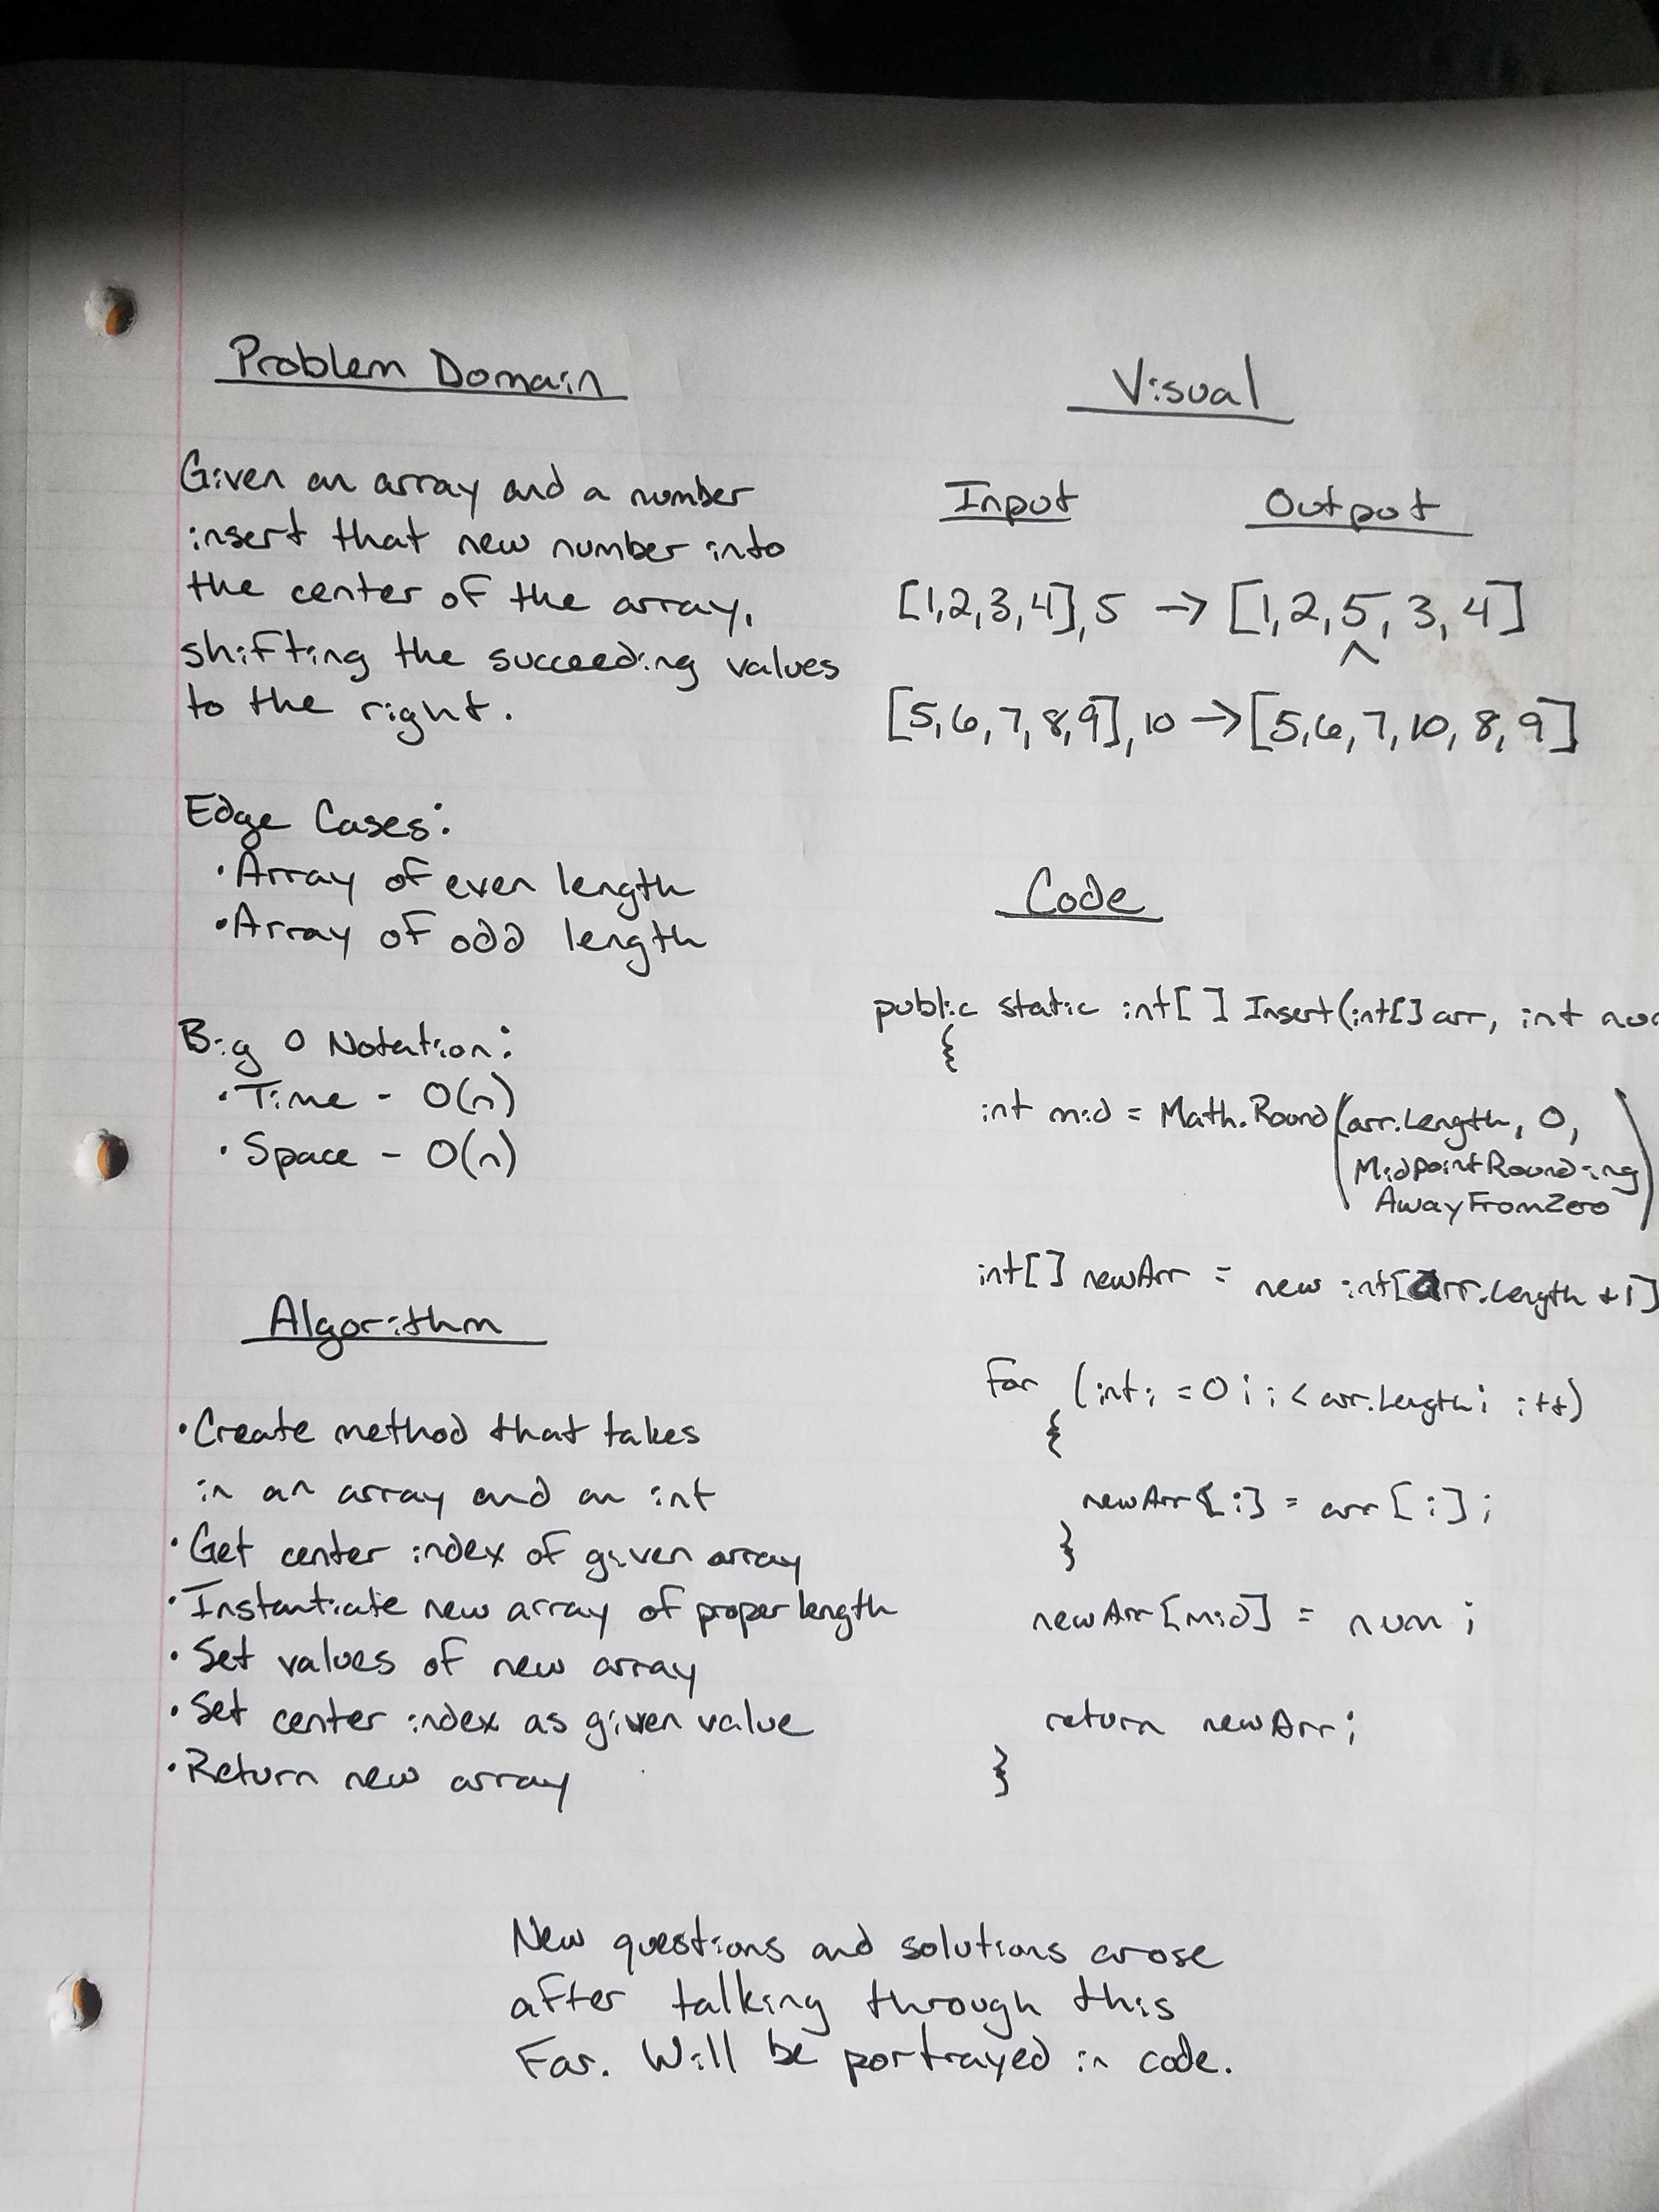 Problem Domain
Given an array and a number
insert that new number into
the center of the array,
shifting the succeeding values
to the right.
Edge Cases:
• Array of even length
• Array of odd length
Big O Notation:
• Time - O(n)
• Space - O(n)
Algorithm
• Create method that takes
in an array and an int
• Get center index of given array
• Instantiate new array of proper length
• Set values of new array
• Set center index as given value
• Return new array
Visual
Input Output
[1,2,3,4],5 → [1,2,5,3,4]
^
[5,6,7,8,9],10 → [5,6,7,10,8,9]
Code
public static int[] Insert(int[] arr, int
{
int mid = Math.Round(arr.Length, 0,
MidpointRounding
AwayFromZero)
int[] newArr = new int[arr.Length +1]
for (int i = 0; i < arr.Length; i++)
{
newArr[i] = arr[i];
}
newArr[mid] = num;
return newArr;
}
New questions and solutions arose
after talking through this
far. Will be portrayed in code.